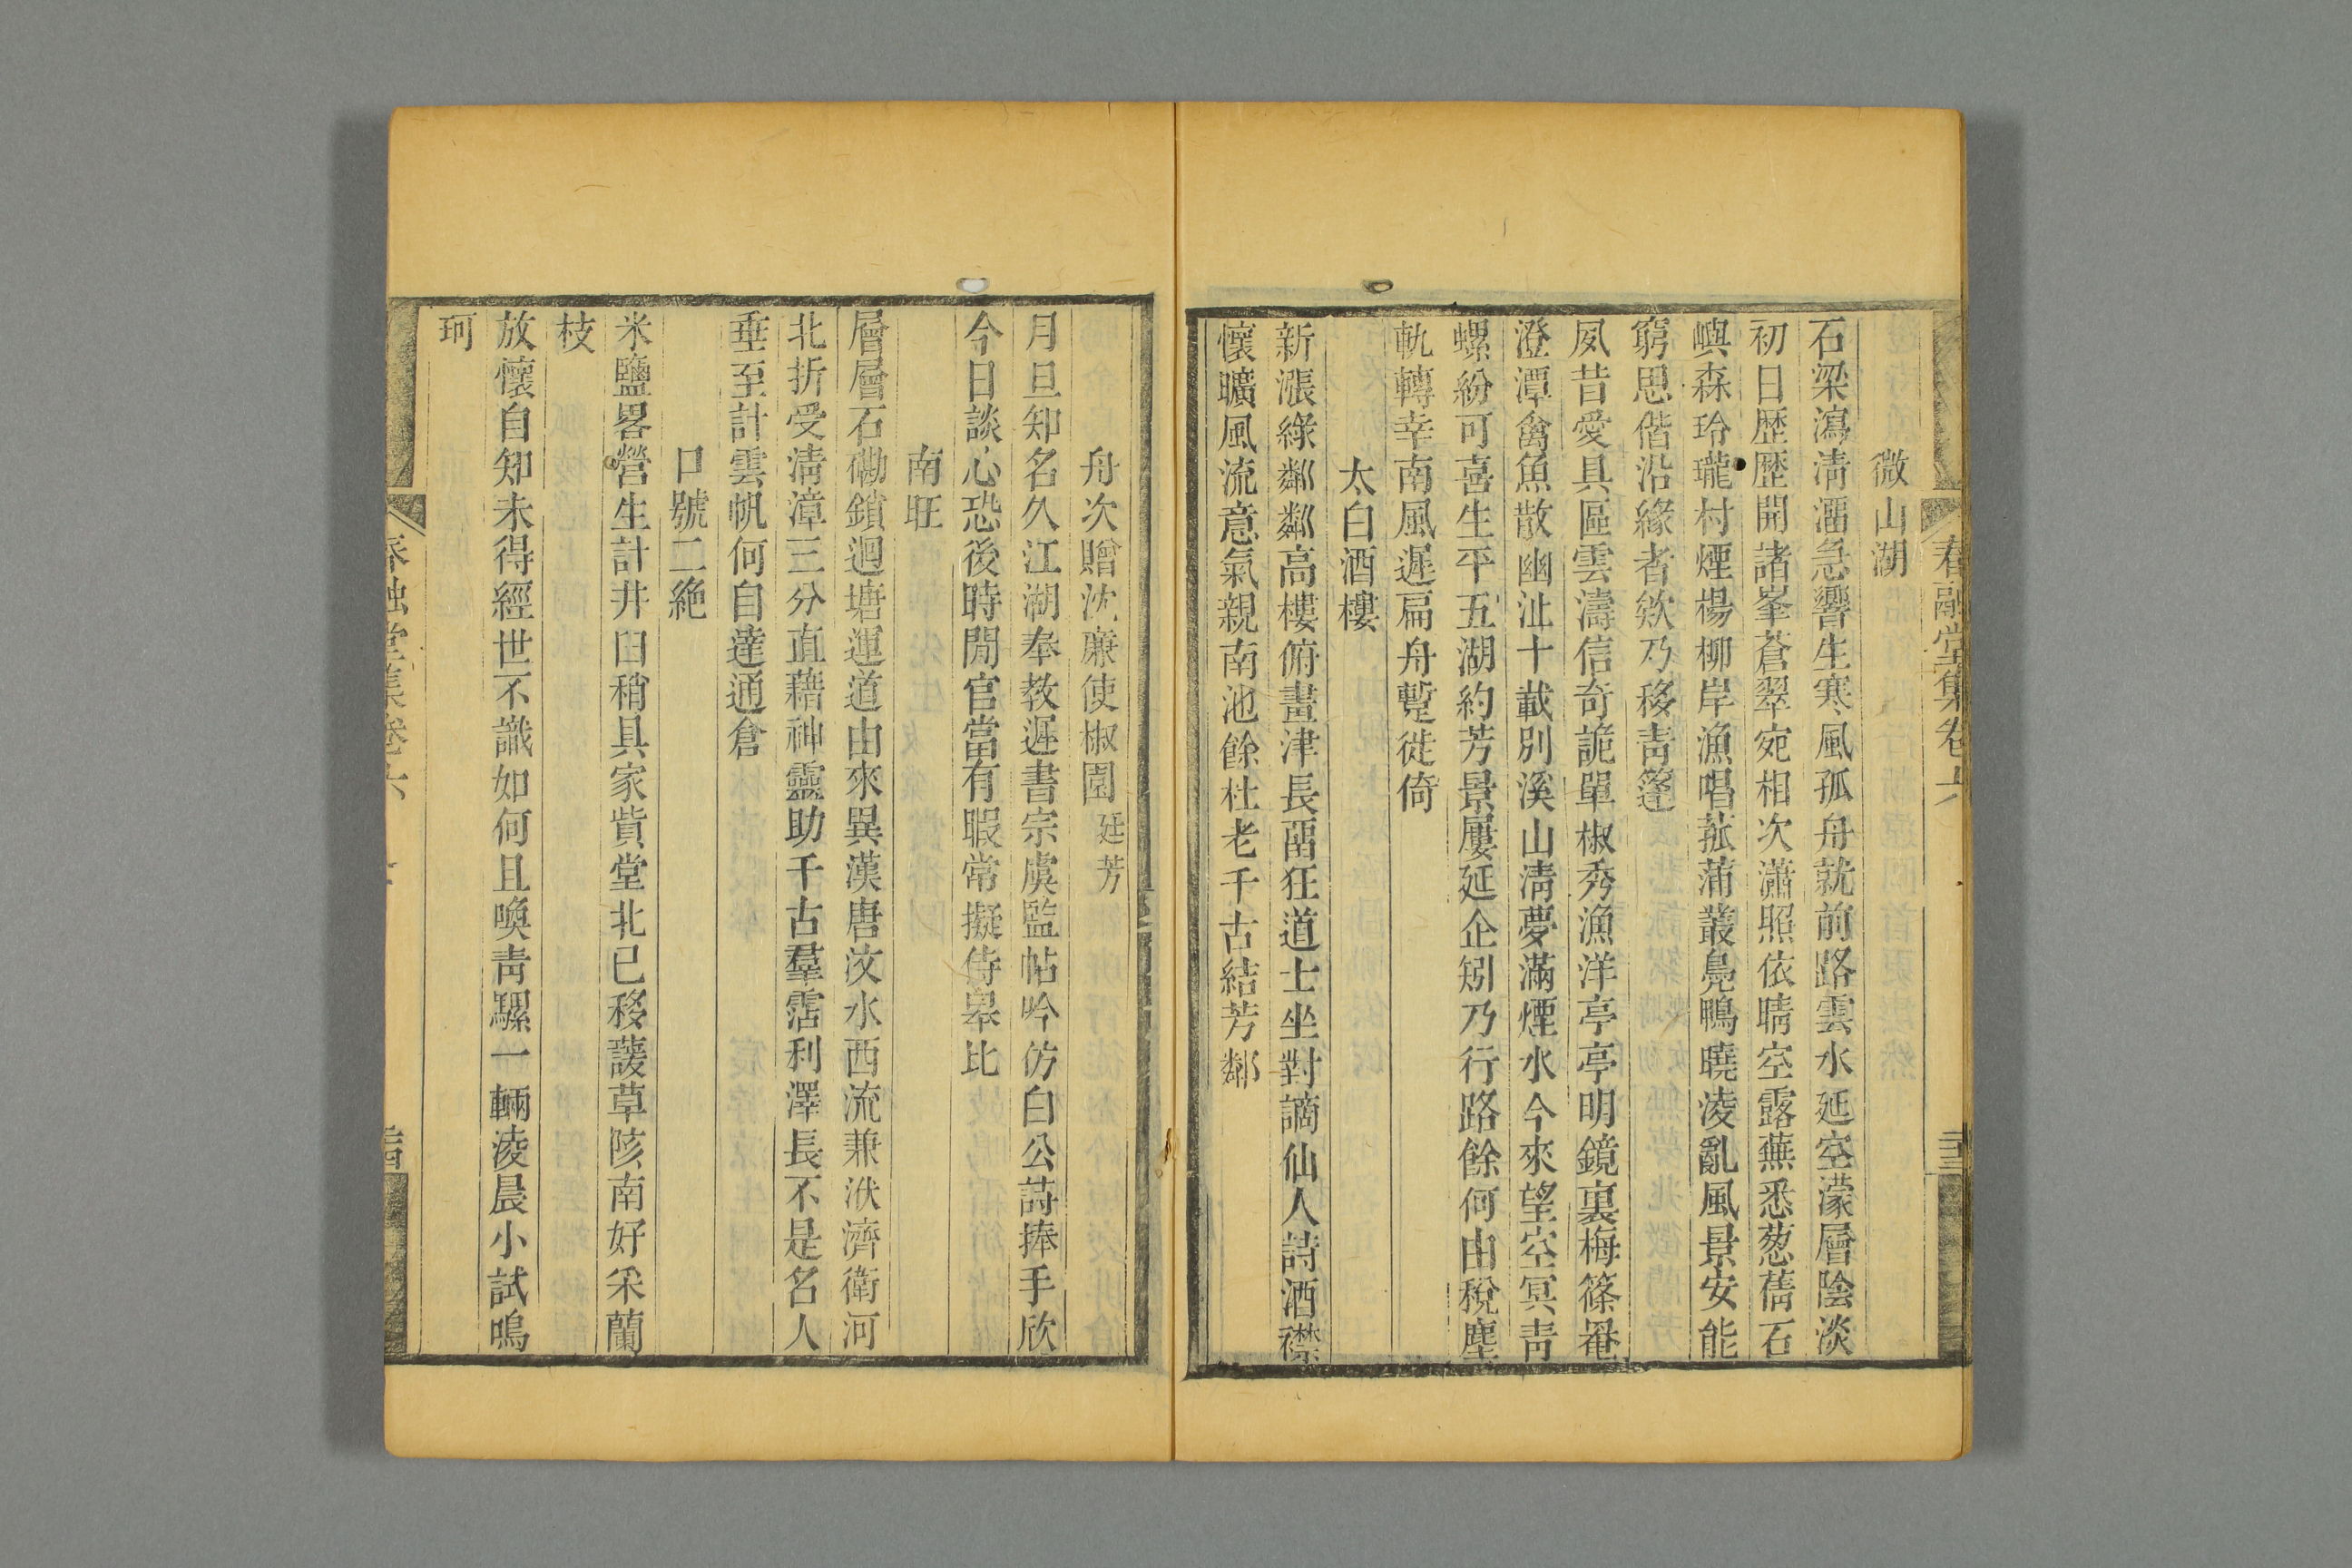 春融堂集卷六
微山湖
石梁瀉清㵽急響生寒風孤舟就前路雲水延空濛層陰淡
初日歴歴開諸峯蒼翠宛相次瀟照依晴空露蕪悉葱蒨石
嶼森玲瓏村煙楊柳岸漁唱菰蒲叢鳧鴨曉淩亂風景安能
窮思偕沿緣者欸乃移靑篷
夙昔愛具區雲濤信奇詭單椒秀漁洋亭亭明鏡裏梅篠罨
澄潭禽魚散幽沚十載別溪山清夢滿煙水今來望空冥靑
螺紛可喜生平五湖約芳景屢延企矧乃行路餘何由稅塵
軌轉幸南風遲扁舟蹔徙倚
太白酒樓
新漲綠鄰鄰高樓俯畫津長畱狂道士坐對謫仙人詩酒襟
懷曠風流意氣親南池餘杜老千古結芳鄰
舟次贈沈廉使椒園廷芳
月旦知名久江湖奉教遲書宗虞監帖吟仿白公詩捧手欣
今日談心恐後時閒官當有暇常擬侍皋比
南旺
層層石磡鎖迴塘運道由來異漢唐汶水西流兼洑濟衛河
北折受清漳三分直藉神靈助千古羣霑利澤長不是名人
垂至計雲帆何自達通倉
口號二絶
米鹽畧營生計井臼稍具家貲堂北已移諼草陔南好采蘭
枝
放懷自知未得經世不識如何且喚靑騾一輛淩晨小試鳴
珂
春融堂集卷六